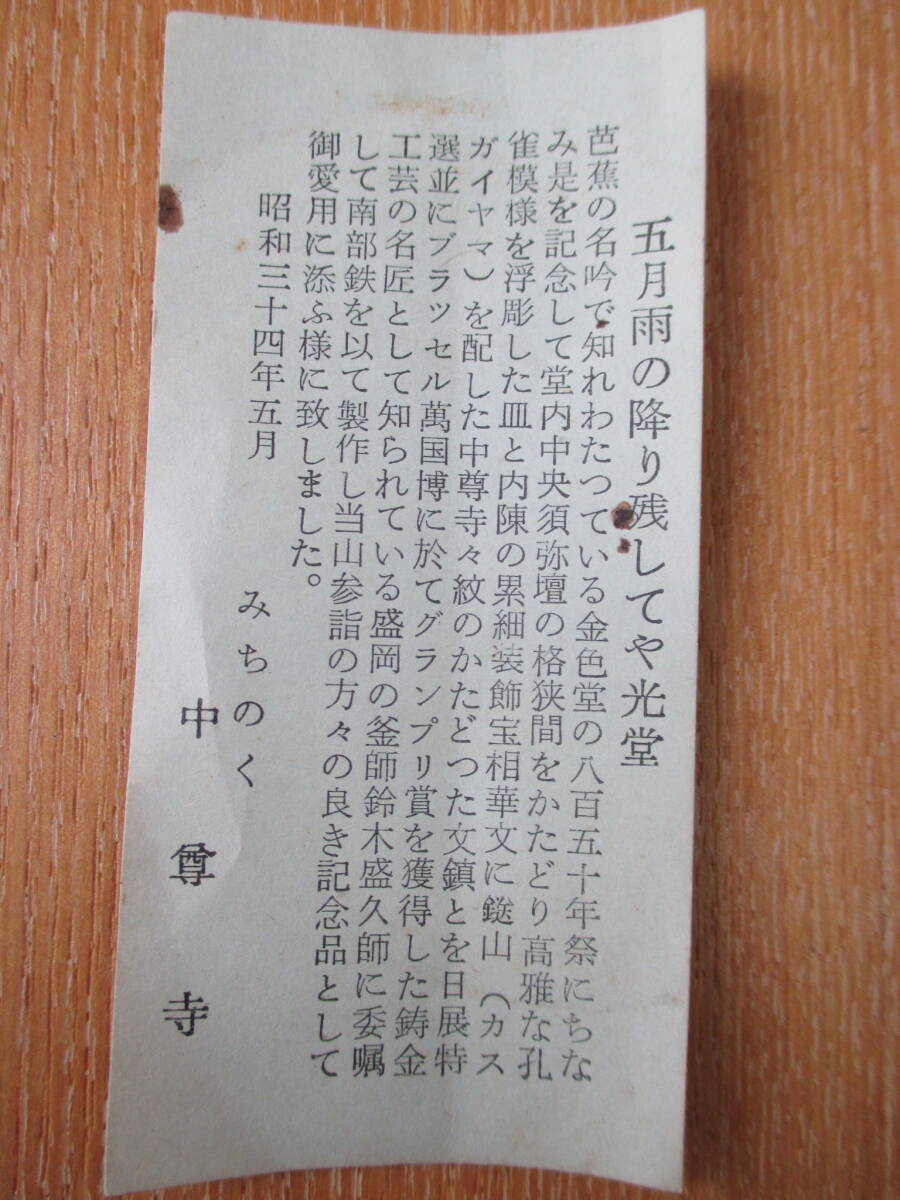 五月雨の降り残してや光堂
芭蕉の名吟で知れわたつている金色堂の八百五十年祭にちな
み是を記念して堂内中央須弥壇の格狭間をかたどり高雅な孔
雀模様を浮彫した皿と内陳の累細装飾宝相華文に鎹山（カス
ガイヤマ）を配した中尊寺々紋のかたどつた文鎮とを日展特
選並にブラッセル萬国博に於てグランプリ賞を獲得した鋳金
工芸の名匠として知られている盛岡の釜師鈴木盛久師に委嘱
して南部鉄を以て製作し当山参詣の方々の良き記念品として
御愛用に添ふ様に致しました。
昭和三十四年五月
みちのく
中尊寺